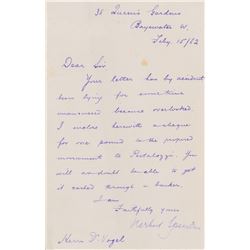 38 Queen's Gardens
Bayswater W.
Feby 15/82
Dear Sir
Your letter has by accident
been lying for some time
unanswered because overlooked.
I enclose herewith a cheque
for one pound to the proposed
monument to Pestalozzi. You
will no doubt be able to get
it cashed through a banker.
I am
Faithfully yours
Herbert Spencer
Herrn Dr Vogel